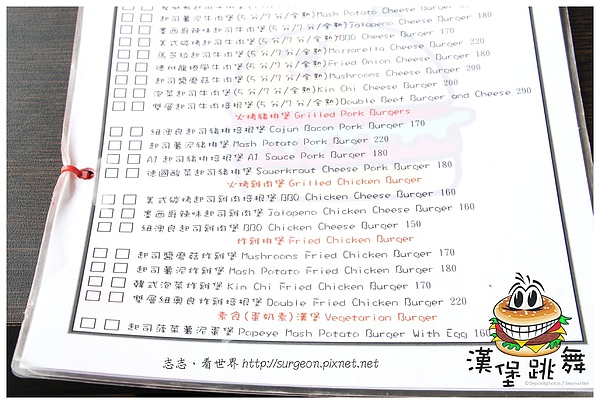 起司薯泥牛肉堡(5分/7分/全熟)Mash Potato Cheese Burger
墨西哥辣味起司牛肉堡(5分/7分/全熟)Jalapeno Cheese Burger 180
美式碳烤起司牛肉堡(5分/7分/全熟)BBQ Cheese Burger 170
馬芝拉起司牛肉堡(5分/7分/全熟)Mozzarella Cheese Burger 220
德州龍捲風牛肉堡(5分/7分/全熟)Fried Onion Cheese Burger 180
起司蘑菇牛肉堡(5分/7分/全熟)Mushroons Cheese Burger 200
泡菜起司牛肉堡(5分/7分/全熟)Kin Chi Cheese Burger 200
雙層起司牛肉培根堡(5分/7分/全熟)Double Beef Burger and Cheese 290
火烤豬肉堡 Grilled Pork Burgers
紐澳良起司豬排培根堡 Cajun Bacon Pork Burger 170
起司薯泥豬排堡 Mash Potato Pork Burger 220
A1起司豬排培根堡 A1 Sauce Pork Burger 180
德國酸菜起司豬排堡 Sauerkraut Cheese Pork Burger 180
火烤雞肉堡 Grilled Chicken Burger
美式碳烤起司雞肉培根堡 BBQ Chicken Cheese Burger 160
墨西哥辣味起司雞肉堡 Jalapeno Chicken Cheese Burger 160
紐澳良起司雞肉堡 BBQ Chicken Cheese Burger 150
炸雞排堡 Fried Chicken Burger
起司醬蘑菇炸雞堡 Mushroons Fried Chicken Burger 170
起司薯泥炸雞堡 Mash Potato Fried Chicken Burger 180
韓式泡菜炸雞堡 Kin Chi Fried Chicken Burger 170
雙層紐奧良炸雞培根堡 Double Fried Chicken Burger 220
素食(蛋奶素)漢堡 Vegetarian Burger
起司菠菜薯泥蛋堡 Popeye Mash Potato Burger With Egg 160
志志、看世界 http://surgeon.pixnet.net
漢堡跳舞
©Depositphotos